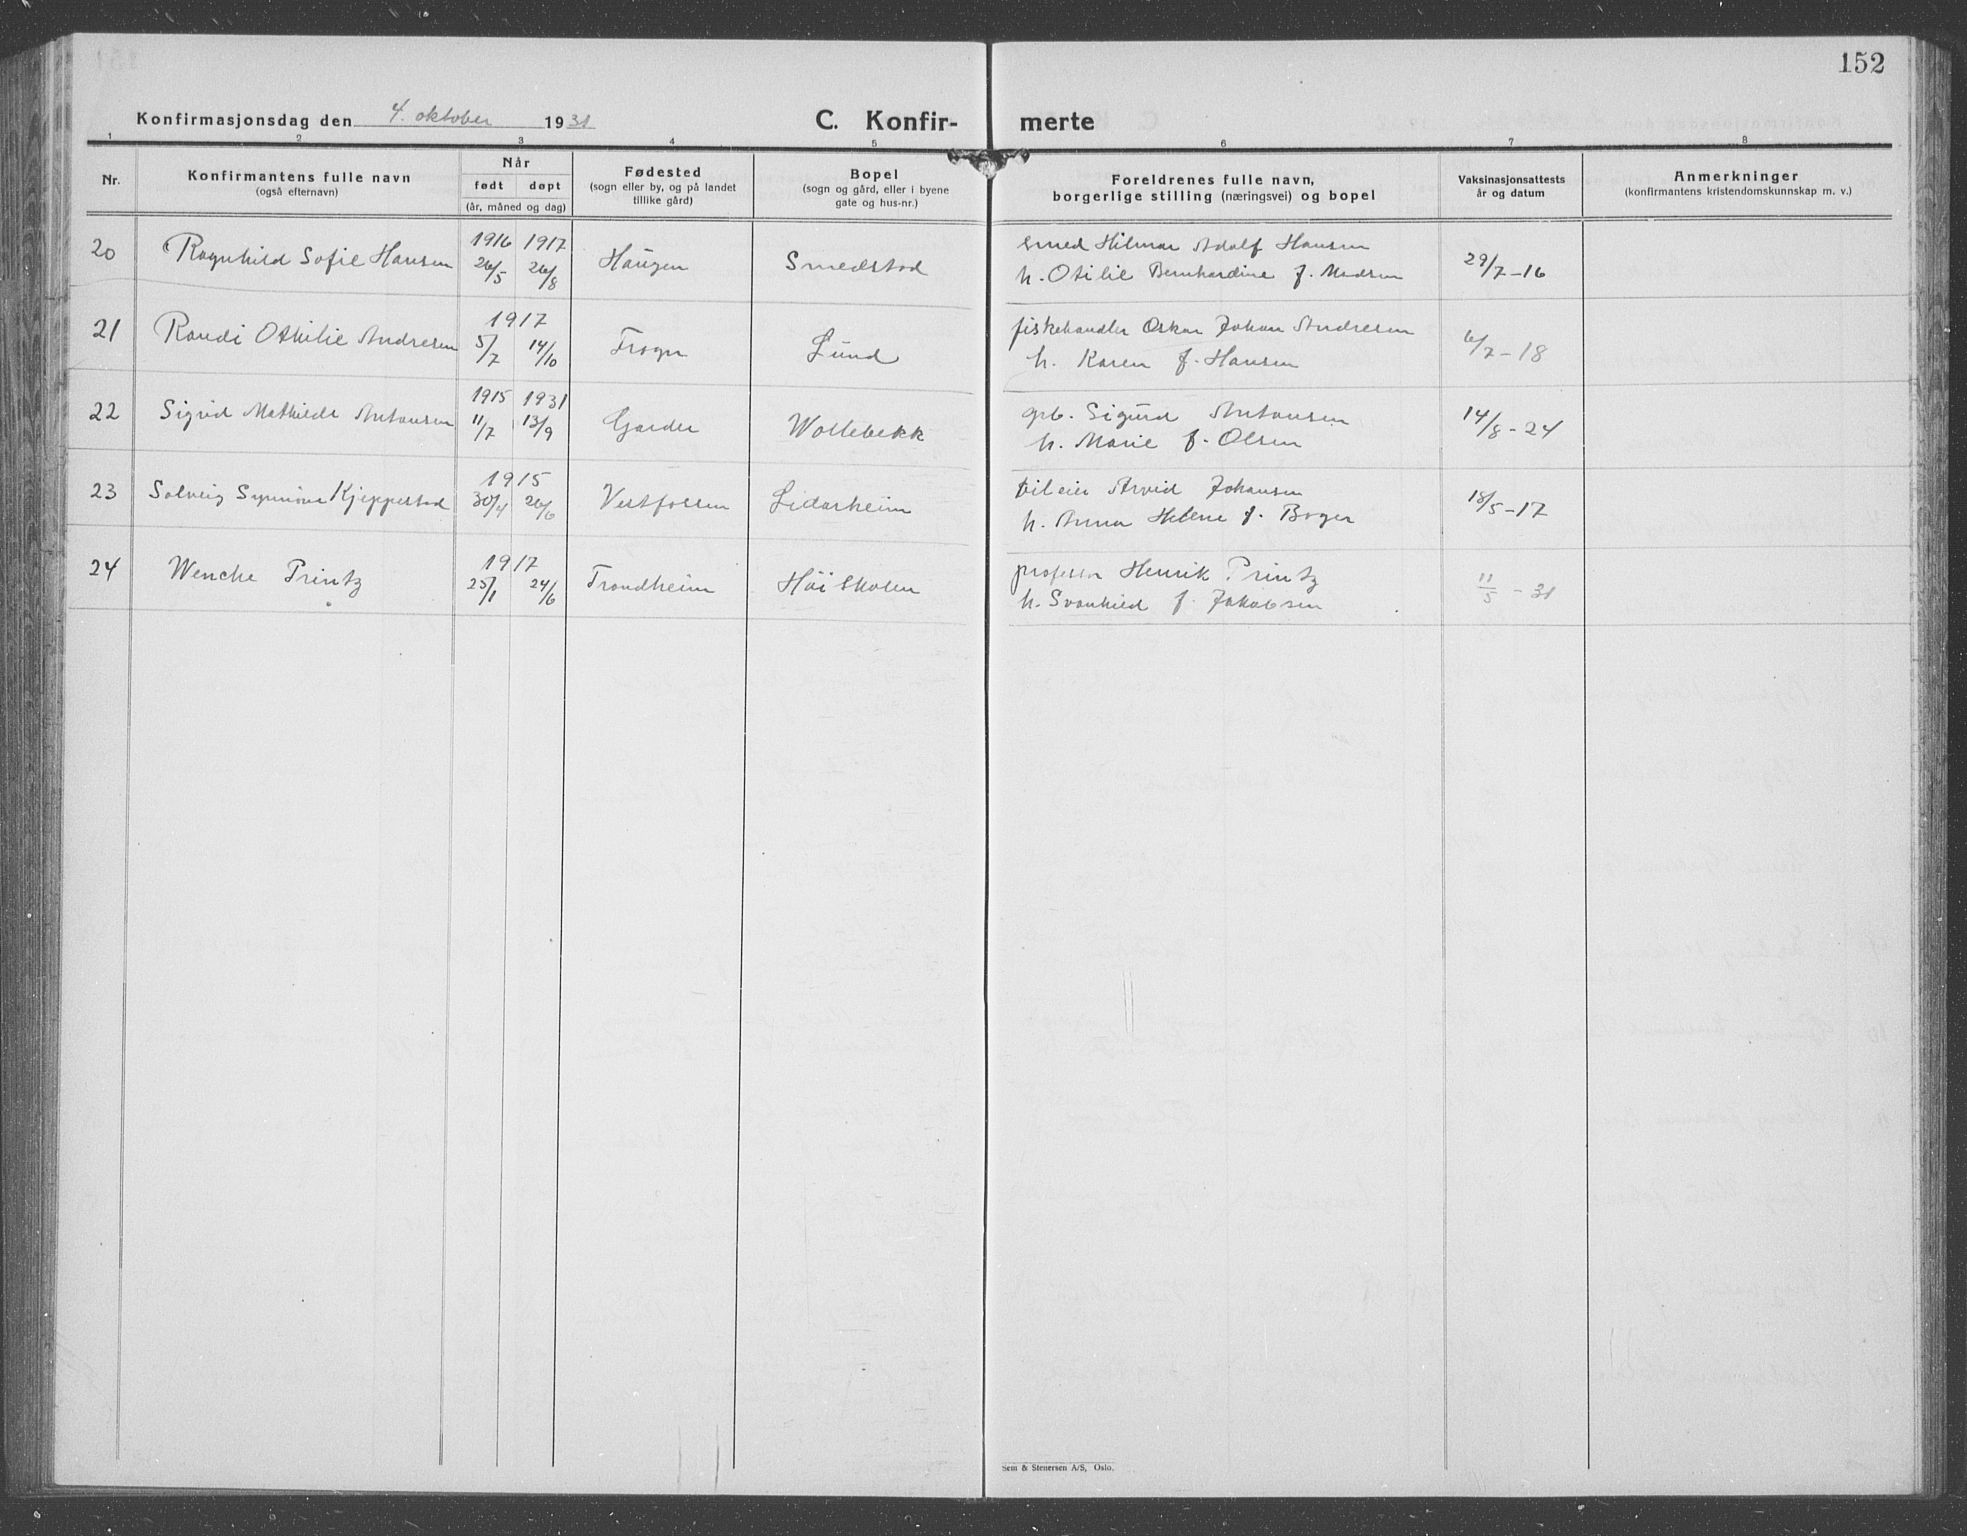 152
Konfirmasjonsdag den 4. oktober 1931 C. Konfir- merte
1 2 3 4 5 6 7 8
Nr. Konfirmantens fulle navn (også efternavn) Når født døpt (år, måned og dag) Fødested (sogn eller by, og på landet tillike gård) Bopel (sogn og gård, eller i byene gate og hus-nr.) Foreldrenes fulle navn, borgerlige stilling (næringsvei) og bopel Vaksinasjonsattests år og datum Anmerkninger (konfirmantens kristendomskunnskap m. v.)
20 Ragnhild Sofie Hansen 1916 26/5 1917 26/8 Haugen Smedstad smed Hilmar Adolf Hansen
h. Otilie Bernhardine f. Madsen 29/7-16
21 Randi Othilie Andresen 1917 5/7 14/10 Frogn Lund fiskehandler Oskar Johan Andresen
h. Karen f. Hansen 6/7-18
22 Sigrid Mathilde Antonsen 1915 11/7 1931 13/9 Garder Wollebekk grb. Sigurd Antonsen
h. Marie f. Olsen 14/8-24
23 Solveig Synnöve Kjeppestad 1915 30/4 26/6 Vestfossen Lidarheim bileier Arvid Johansen
h. Anna Helene f. Boger 18/5-17
24 Wenche Printz 1917 25/1 24/6 Trondheim Höiskolen professor Henrik Printz
h. Svanhild f. Jakobsen 11/5 - 31
Sem & Stenersen A/S, Oslo.